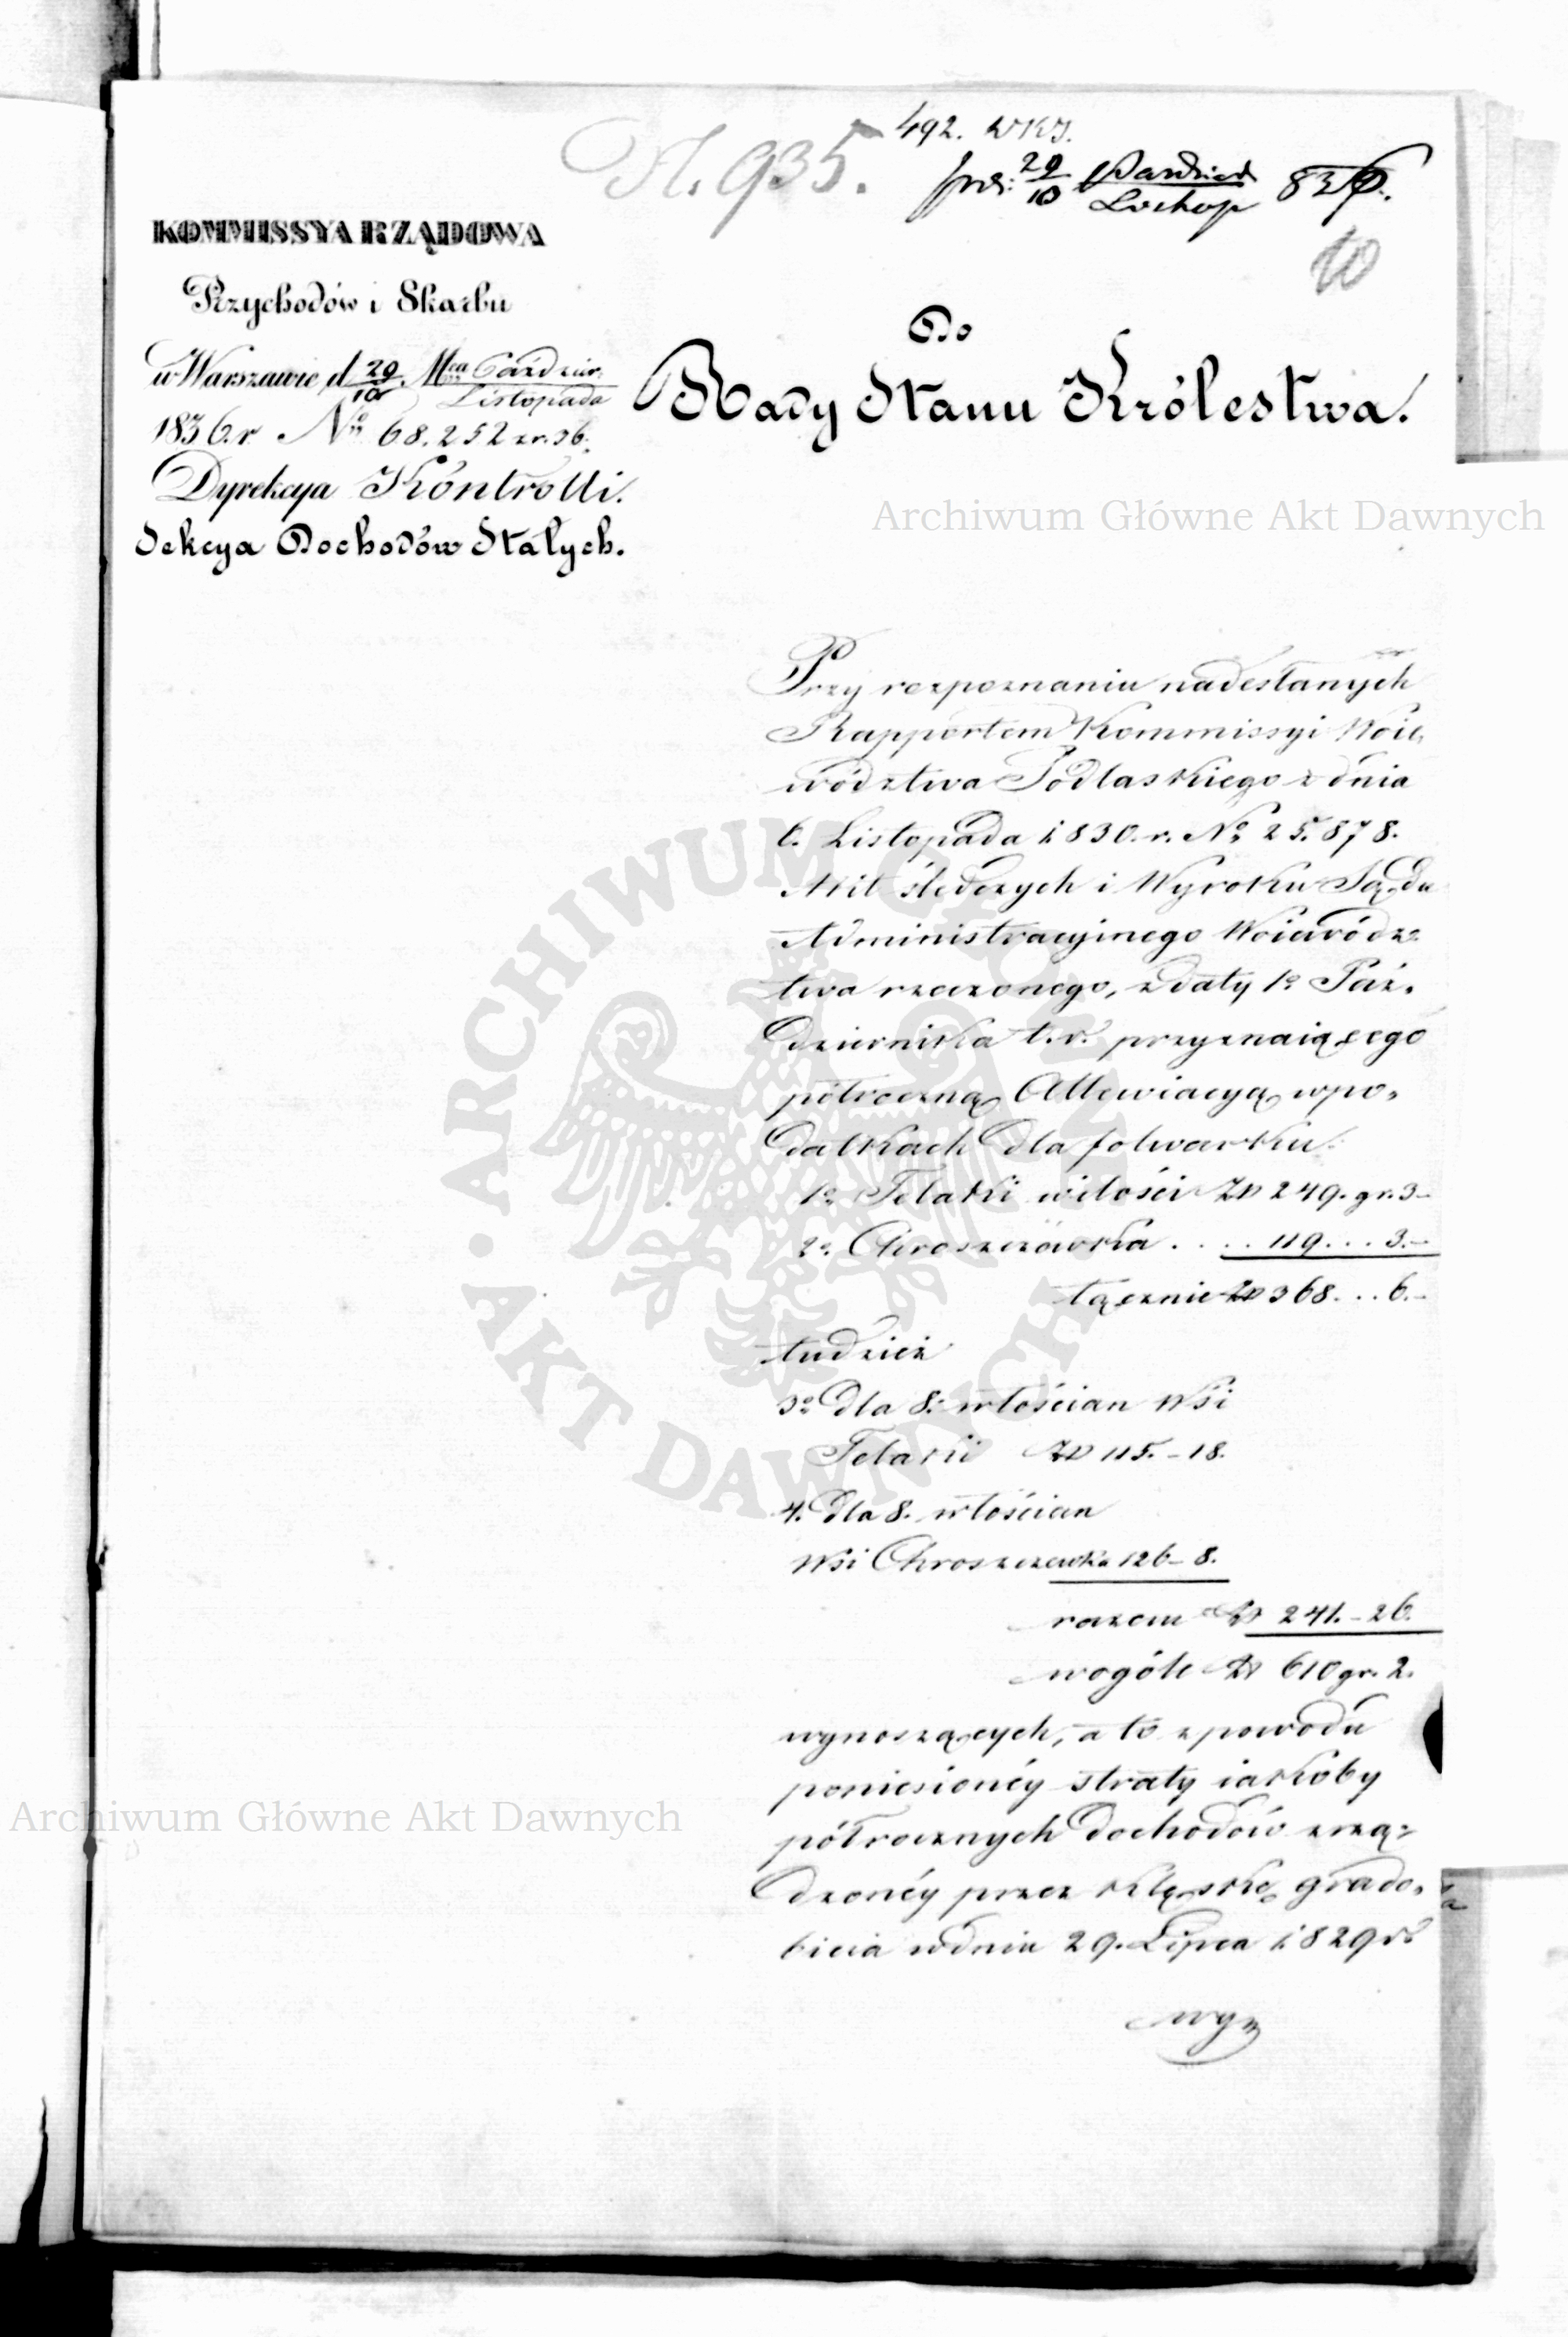 492. WKJ.
N. 935.
10
KOMMISSYA RZĄDOWA
Przychodów i Skarbu
w Warszawie d 29/10 Mca Paździer./Listopada
1836.r No 68.252
Dyrekcya Kontrolli.
Sekcya Dochodów Stałych.
Do
Rady Stanu Królestwa.
Archiwum Główne Akt Dawnych
Przy rozpoznaniu nadesłanych
Rapportem Kommissyi Woie,
wództwa Podlaskiego z dnia
6. Listopada 1830. r. No 25.878.
Akt śledczych i Wyroku Sądu
Administracyinego Woiewódz,
twa rzeczonego, z daty 1o Paź,
dziernika t. r. przyznaiącego
półroczną Allewiacyą w po,
datkach dla folwarku:
1o Telaki w ilości Zp 249. gr. 3 -
2o Chroszczówka . . . . 119 . . . 3. -
łącznie Zp 368 . . . 6. -
tudzież
3o dla 8. włościan Wsi
Telaki Zp 115. - 18.
4. dla 8. włościan
Wsi Chroszczewka 126 - 8.
razem Zp 241. - 26.
wogóle Zp 610 gr. 2.
wynoszących, a to z powodu
poniesionéy straty iakoby
półrocznych dochodów zrzą=
dzonéy przez klęskę grado,
bicia w dniu 29. Lipca 1829 r.
wy=
Archiwum Główne Akt Dawnych
ARCHIWUM GŁÓWNE · AKT DAWNYCH ·